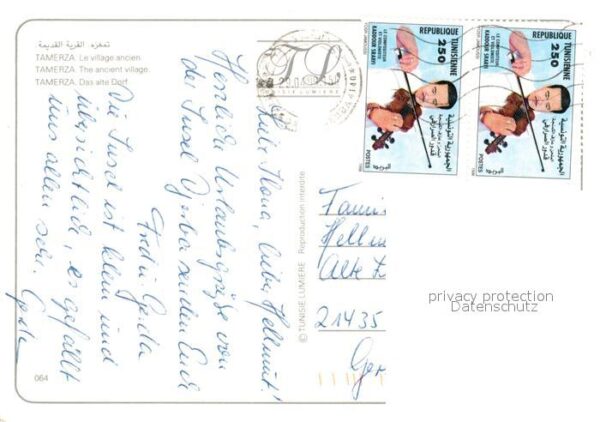 تمغزه. القرية القديمة
TAMERZA. Le village ancien.
TAMERZA. The ancient village.
TAMERZA. Das alte Dorf.
Liebe Ilona, lieber Hellmut!
Herzliche Urlaubsgrüße von
der Insel Djerba senden Euch
Fredi Gerda
Die Insel ist klein und
übersichtlich, es gefällt
uns allen sehr. Gerda
© TUNISIE LUMIERE Reproduction interdite
064
TL
TUNISIE LUMIERE
REPUBLIQUE TUNISIENNE
250
LE COMPOSITEUR
ET VIOLONISTE
KADDOUR SRARFI
الجمهورية التونسية
قدور الصرارفي
POSTES
البريد
REPUBLIQUE TUNISIENNE
250
LE COMPOSITEUR
ET VIOLONISTE
KADDOUR SRARFI
الجمهورية التونسية
قدور الصرارفي
POSTES
البريد
Hellm
Alte
21435
Ger
privacy protection
Datenschutz